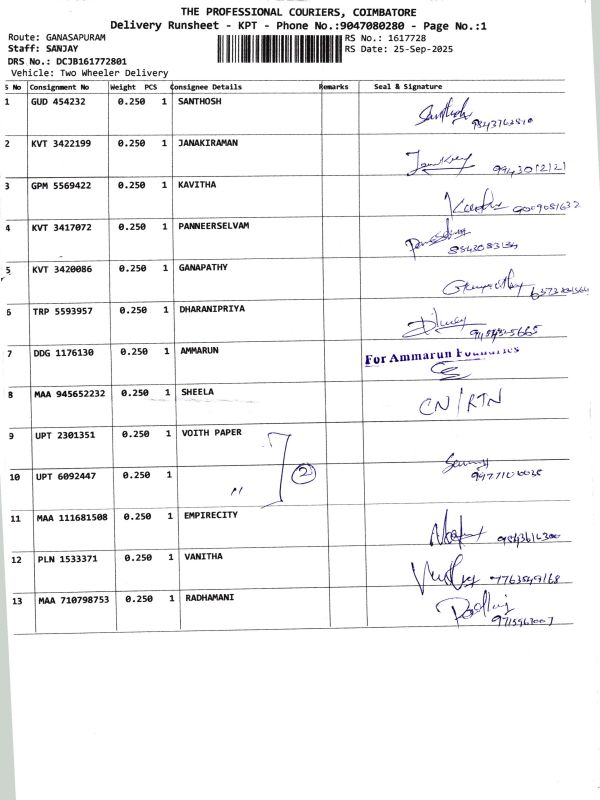 THE PROFESSIONAL COURIERS, COIMBATORE
Delivery Runsheet - KPT - Phone No.:9047080280 - Page No.:1
Route: GANASAPURAM RS No.: 1617728
Staff: SANJAY RS Date: 25-Sep-2025
DRS No.: DCJB161772801
Vehicle: Two Wheeler Delivery
S No Consignment No Weight PCS Consignee Details Remarks Seal & Signature
1 GUD 454232 0.250 1 SANTHOSH
2 KVT 3422199 0.250 1 JANAKIRAMAN
3 GPM 5569422 0.250 1 KAVITHA
4 KVT 3417072 0.250 1 PANNEERSELVAM
5 KVT 3420086 0.250 1 GANAPATHY
6 TRP 5593957 0.250 1 DHARANIPRIYA
7 DDG 1176130 0.250 1 AMMARUN For Ammarun Foundries
8 MAA 945652232 0.250 1 SHEELA CN/RTN
9 UPT 2301351 0.250 1 VOITH PAPER
10 UPT 6092447 0.250 1 " 2
11 MAA 111681508 0.250 1 EMPIRECITY
12 PLN 1533371 0.250 1 VANITHA
13 MAA 710798753 0.250 1 RADHAMANI